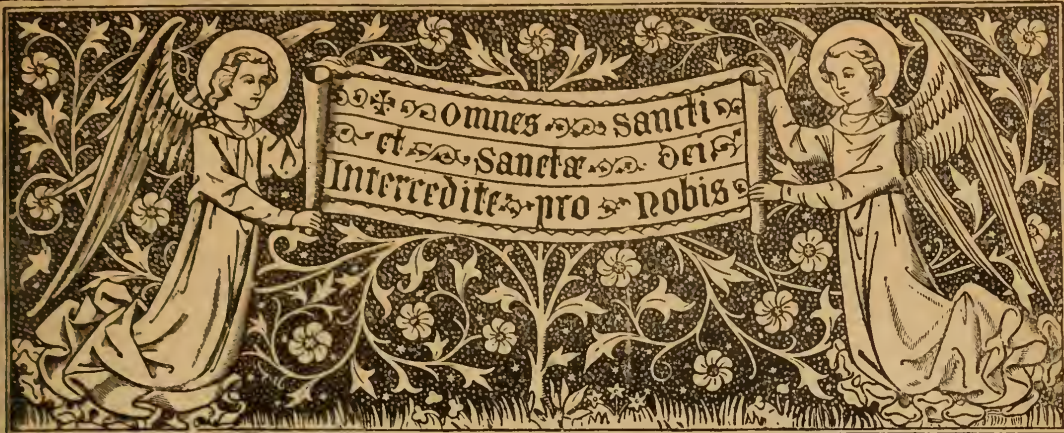 ✠ omnes sancti
et sanctæ dei
Intercedite pro nobis